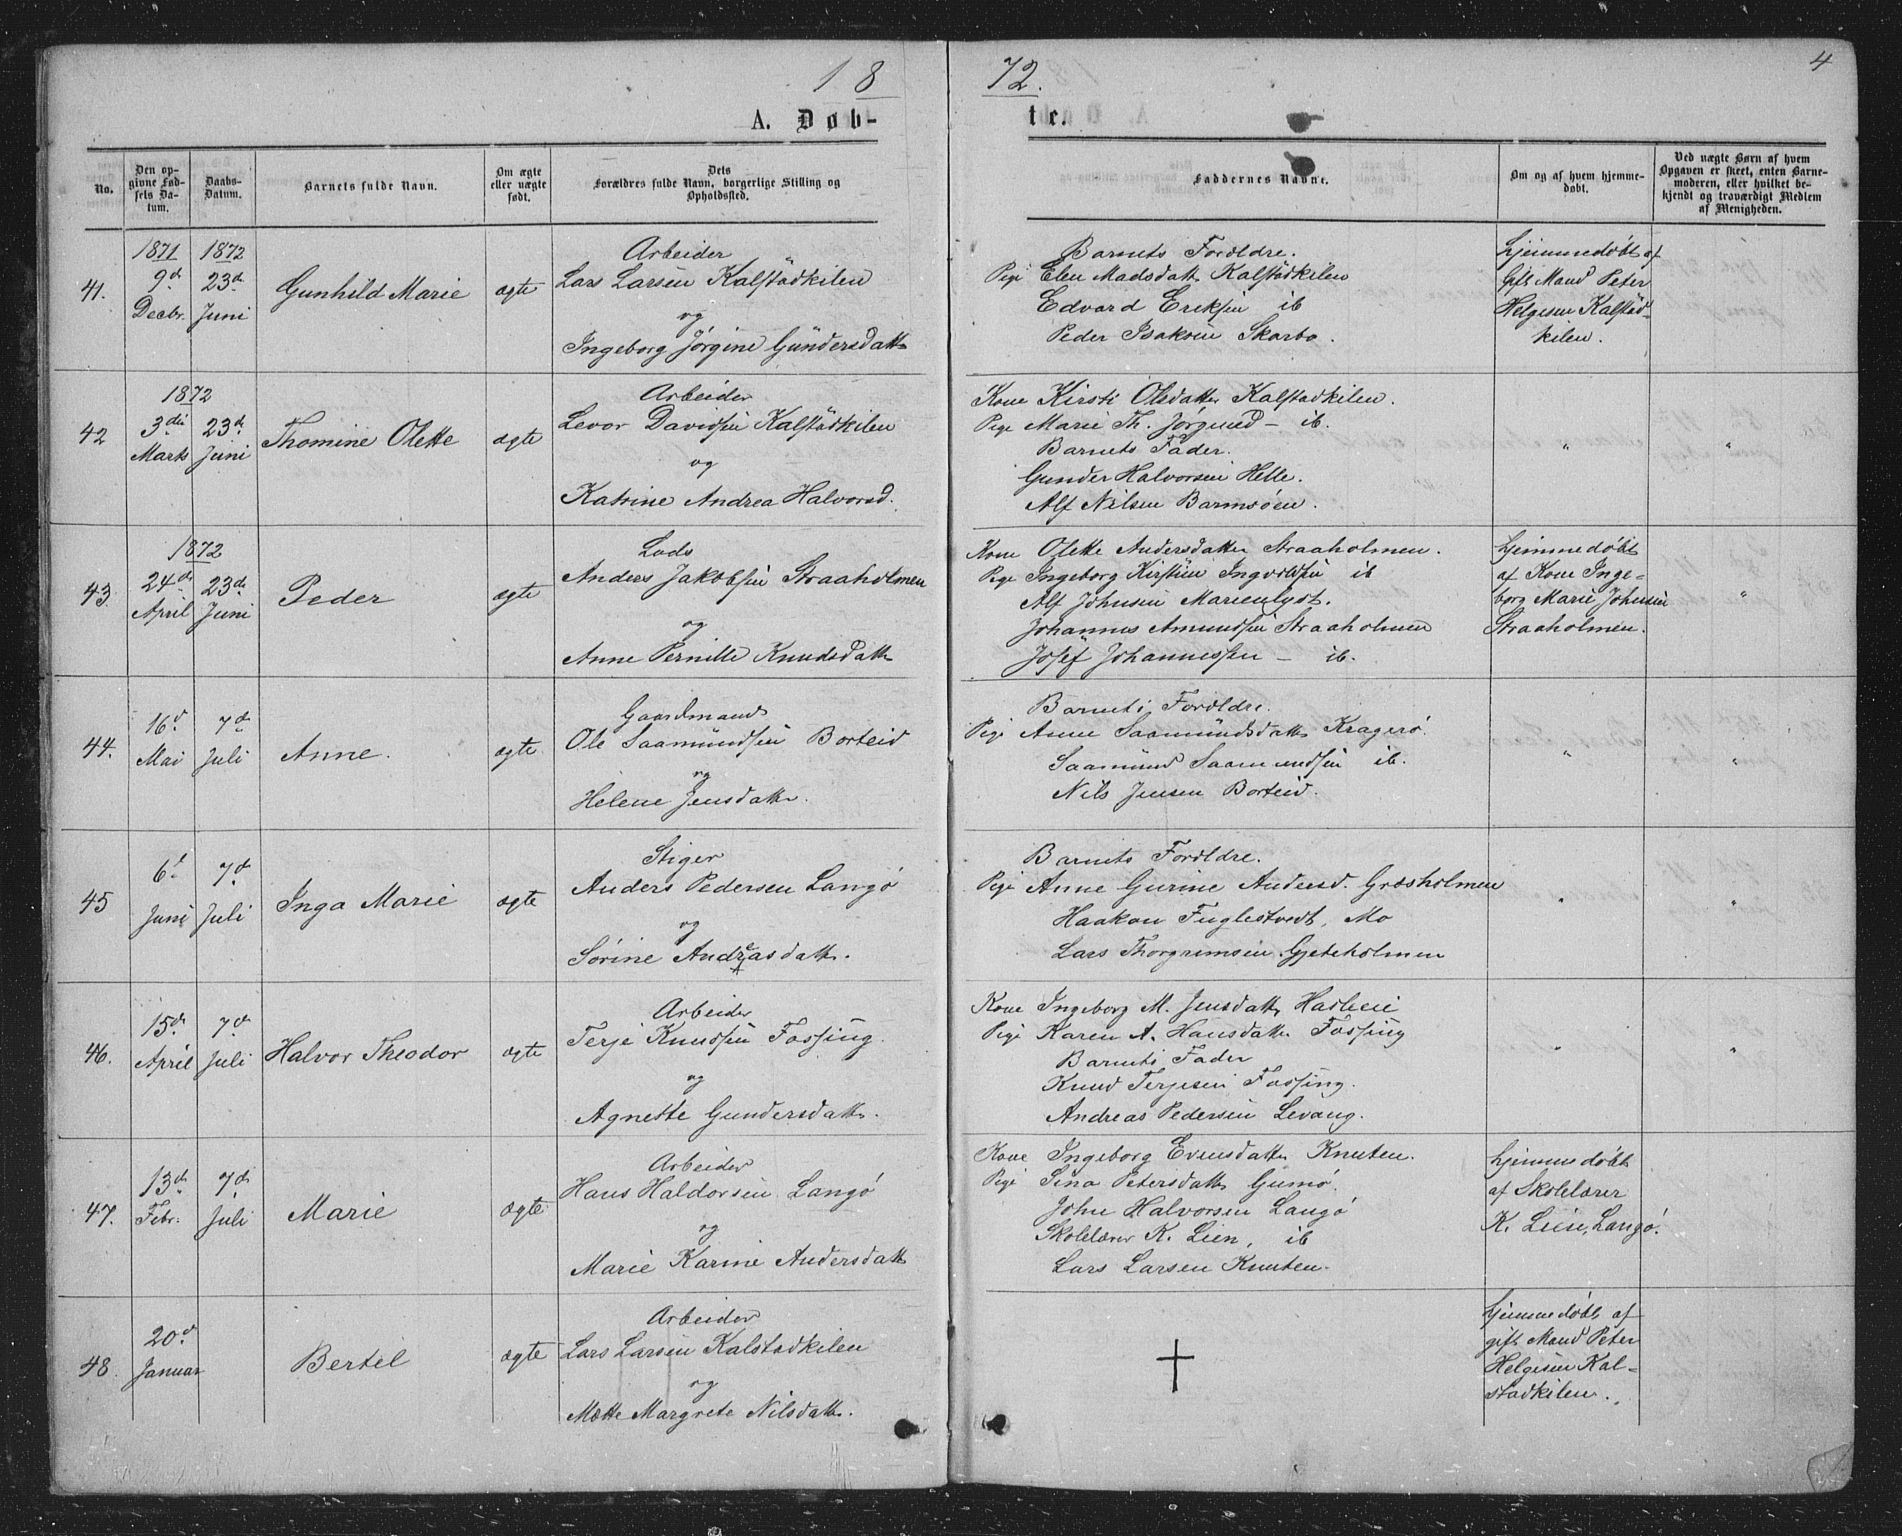 1 8 72. 4
A. Døb- te.
No.
Den op-
givne Fød-
sels Da-
tum.
Daabs-
Datum.
Barnets fulde Navn.
Om ægte
eller uægte
født.
Dets
Forældres fulde Navn, borgerlige Stilling og
Opholdssted.
Faddernes Navne.
Om og af hvem hjemme-
døbt.
Ved uægte Børn af hvem
Opgaven er skeet, enten Barne-
moderen, eller hvilket be-
kjendt og troværdigt Medlem
af Menigheden.
41.
1871
9d
Decbr.
1872
23d
Juni
Gunhild Marie
ægte
Arbeider
Lars Larsen Kalstadkilen
og
Ingeborg Jørgine Gundersdatt
Barnets Forældre.
Pige Elen Madsdatt Kalstadkilen
Edvard Eriksen ib
Peder Isaksen Skarbo.
hjemmedøbt af
Gift Mand Peter
Helgesen Kalstad-
kilen.
42
1872
3die
Marts
23d
Juni
Thomine Olette
ægte
Arbeider
Levor Davidsen Kalstadkilen
og
Katrine Andrea Halvorsd.
Kone Kirsti Olsdatter Kalstadkilen.
Pige Marie Th. Jørgensd – ib.
Barnets Fader.
Gunder Halvorsen Helle.
Alf Nilsen Barmsøen.
"
"
43.
1872
24de
April
23d
Juni
Peder
ægte
Lods
Anders Jakobsen Straaholmen
og
Anne Pernille Knudsdatt
Kone Olette Andersdatter Straaholmen.
Pige Ingeborg Kirstine Ingvoldsen ib
Alf Johnsen Marienlyst.
Johannes Amundsen Straaholmen
Josef Johannessen – ib.
hjemmedøbt
af Kone Inge-
borg Marie Johnsen
Straaholmen.
"
44.
16d
Mai
7d
Juli
Anne.
ægte
Gaardmand
Ole Saamundsen Borteid
og
Helene Jensdatt.
Barnets Forældre.
Pige Anne Saamundsdatt Kragerø.
Saamund Saamundsen ib.
Nils Jensen Borteid.
"
"
45
6d
Juni
7d
Juli
Inga Marie
ægte
Stiger
Anders Pedersen Langø
og
Sørine Andreasdatt.
Barnets Forældre.
Pige Anne Gurine Andersd. Græsholmen
Haakon Fuglestvedt, Mo
Lars Thorgrimsen Gjeteholmen
"
"
46.
15d
April
7d
Juli
Halvor Theodor
ægte
Arbeider
Terje Knudsen Fossing.
og
Agnette Gundersdatt.
Kone Ingeborg M. Jensdatt,
Pige Karen A. Hansdatter Fossing
Barnets Fader
Knud Terjesen Fossing.
Andreas Pedersen Levang.
"
"
47.
13d
Febr.
7d
Juli
Marie
ægte
Arbeider
Hans Haldorsen Langø
og
Marie Karine Andersdatt
Kone Ingeborg Evensdatter Knuten.
Pige Sina Petersdatt Gumø.
John Halvorsen Langø
Skolelærer K. Lien, ib
Lars Larsen Knuten.
hjemmedøbt
af Skolelærer
K. Lien, Langø.
48.
20d
Januar
Bertel
ægte
Arbeider
Lars Larsen Kalstadkilen
og
Mætte Margrete Nilsdatt.
hjemmedøbt af
gift Mand Peter
Helgesen Kal-
stadkilen.